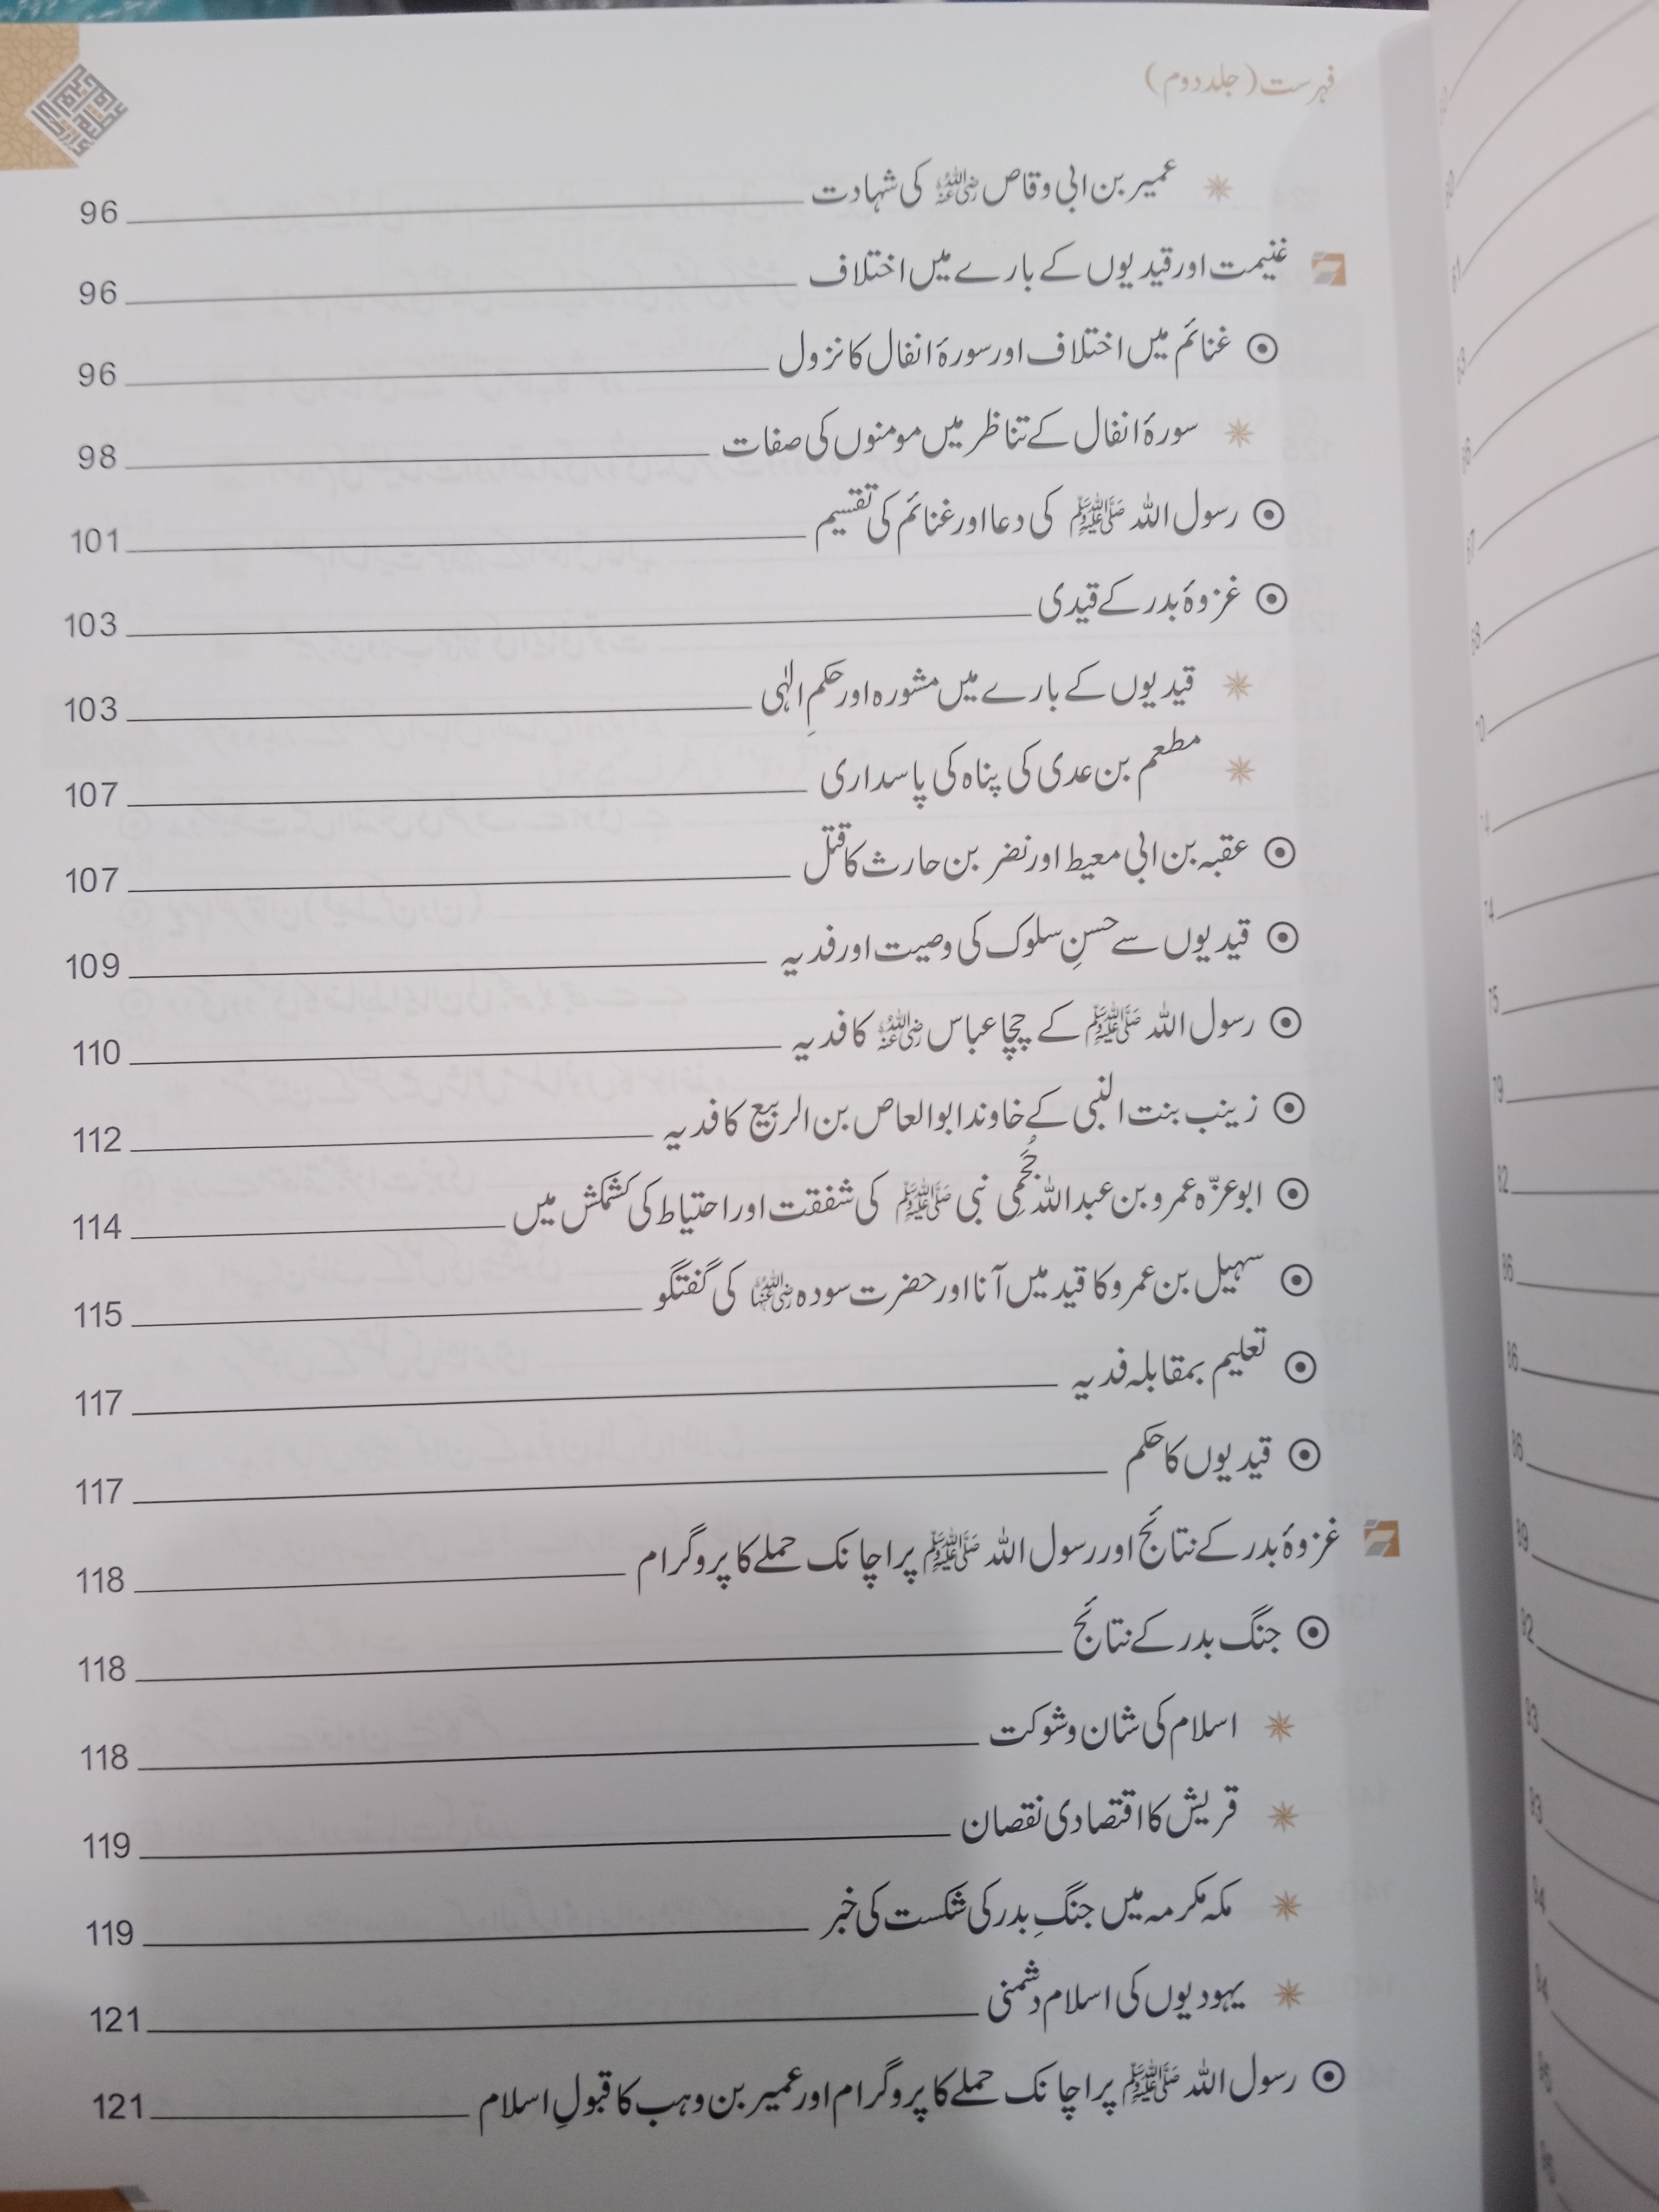 فہرست (جلد دوم)
عمیر بن ابی وقاص رضی اللہ عنہ کی شہادت 96
غنیمت اور قیدیوں کے بارے میں اختلاف 96
غنائم میں اختلاف اور سورۂ انفال کا نزول 96
سورۂ انفال کے تناظر میں مومنوں کی صفات 98
رسول اللہ ﷺ کی دعا اور غنائم کی تقسیم 101
غزوۂ بدر کے قیدی 103
قیدیوں کے بارے میں مشورہ اور حکمِ الٰہی 103
مطعم بن عدی کی پناہ کی پاسداری 107
عقبہ بن ابی معیط اور نضر بن حارث کا قتل 107
قیدیوں سے حسنِ سلوک کی وصیت اور فدیہ 109
رسول اللہ ﷺ کے چچا عباس رضی اللہ عنہ کا فدیہ 110
زینب بنت النبی کے خاوند ابو العاص بن الربیع کا فدیہ 112
ابو عزّہ عمرو بن عبداللہ جُمَحِی نبی ﷺ کی شفقت اور احتیاط کی کشمکش میں 114
سہیل بن عمرو کا قید میں آنا اور حضرت سودہ رضی اللہ عنہا کی گفتگو 115
تعلیم بمقابلہ فدیہ 117
قیدیوں کا حکم 117
غزوۂ بدر کے نتائج اور رسول اللہ ﷺ پر اچانک حملے کا پروگرام 118
جنگ بدر کے نتائج 118
اسلام کی شان و شوکت 118
قریش کا اقتصادی نقصان 119
مکہ مکرمہ میں جنگِ بدر کی شکست کی خبر 119
یہودیوں کی اسلام دشمنی 121
رسول اللہ ﷺ پر اچانک حملے کا پروگرام اور عمیر بن وہب کا قبولِ اسلام 121